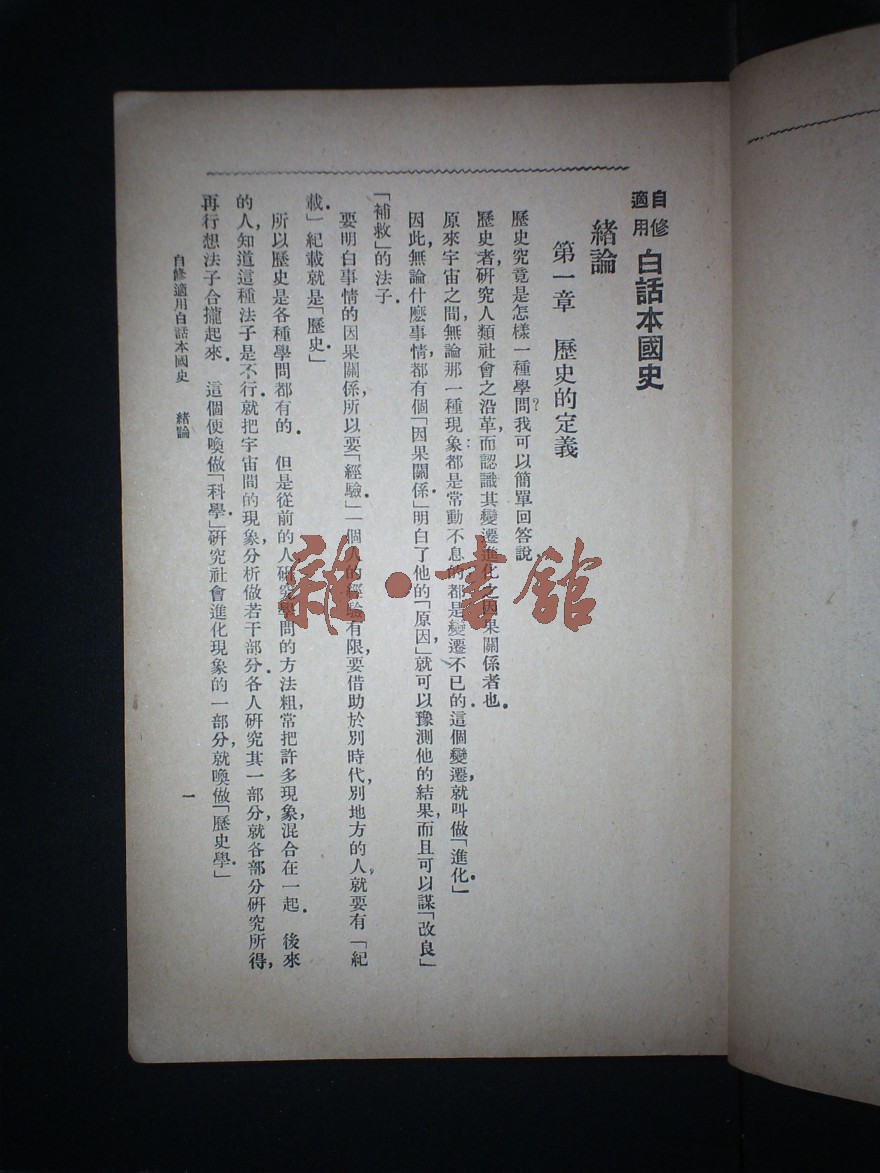 自修
適用
白話本國史
緒論
第一章　歷史的定義
歷史究竟是怎樣一種學問?我可以簡單回答說.
歷史者,研究人類社會之沿革,而認識其變遷進化之因果關係者也.
原來宇宙之間,無論那一種現象都是常動不息的:都是變遷不已的.這個變遷,就叫做「進化.」
因此,無論什麼事情,都有個「因果關係.」明白了他的「原因,」就可以豫測他的結果,而且可以謀「改良」
「補救」的法子.
要明白事情的因果關係,所以要「經驗.」一個人的經驗有限,要借助於別時代,別地方的人,就要有「紀
載.」紀載就是「歷史.」
所以歷史是各種學問都有的.　但是從前的人,研究學問的方法粗,常把許多現象,混合在一起.　後來
的人,知道這種法子是不行.就把宇宙間的現象,分析做若干部分.各人研究其一部分,就各部分研究所得,
再行想法子合攏起來.　這個便喚做「科學.」研究社會進化現象的一部分,就喚做「歷史學.」
自修適用白話本國史　緒論
一
雜·書館